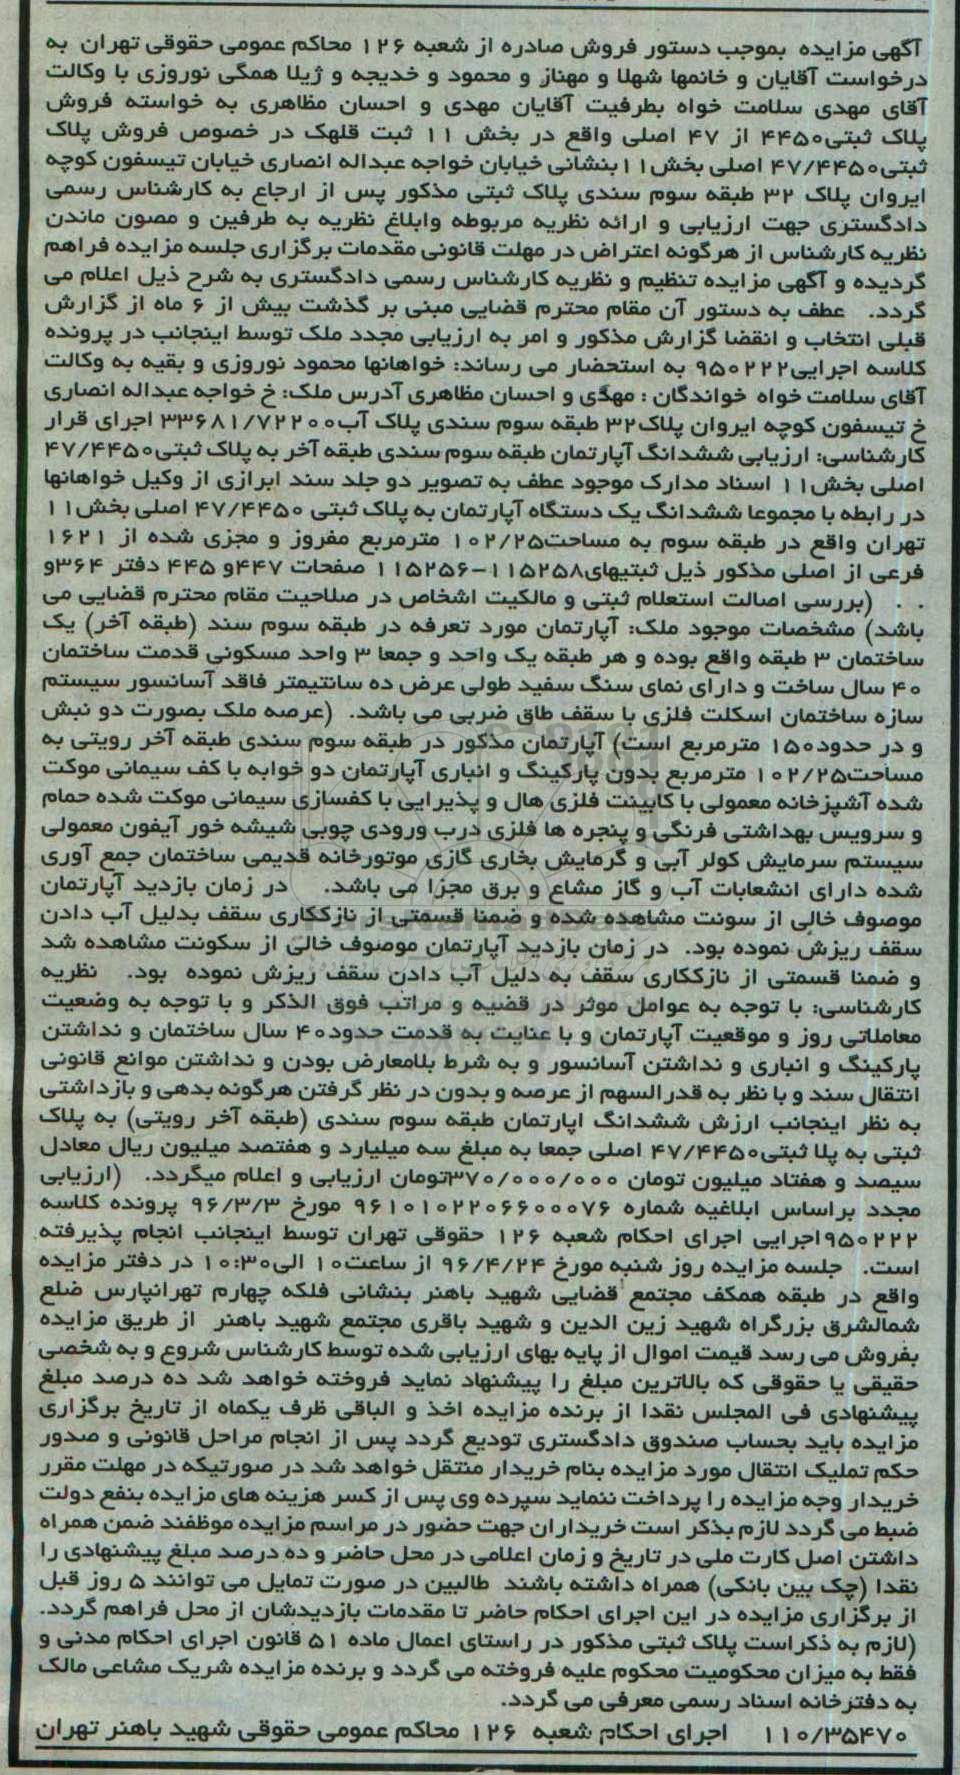 آگهی مزایده بموجب دستور فروش صادره از شعبه ۱۲۶ محاکم عمومی حقوقی تهران به
درخواست آقایان و خانمها شهلا و مهناز و محمود و خدیجه و ژیلا همگی نوروزی با وکالت
آقای مهدی سلامت خواه بطرفیت آقایان مهدی و احسان مظاهری به خواسته فروش
پلاک ثبتی۴۴۵۰ از ۴۷ اصلی واقع در بخش ۱۱ ثبت قلهک در خصوص فروش پلاک
ثبتی۴۷/۴۴۵۰ اصلی بخش۱۱بنشانی خیابان خواجه عبداله انصاری خیابان تیسفون کوچه
ایروان پلاک ۳۲ طبقه سوم سندی پلاک ثبتی مذکور پس از ارجاع به کارشناس رسمی
دادگستری جهت ارزیابی و ارائه نظریه مربوطه وابلاغ نظریه به طرفین و مصون ماندن
نظریه کارشناس از هرگونه اعتراض در مهلت قانونی مقدمات برگزاری جلسه مزایده فراهم
گردیده و آگهی مزایده تنظیم و نظریه کارشناس رسمی دادگستری به شرح ذیل اعلام می
گردد. عطف به دستور آن مقام محترم قضایی مبنی بر گذشت بیش از ۶ ماه از گزارش
قبلی انتخاب و انقضا گزارش مذکور و امر به ارزیابی مجدد ملک توسط اینجانب در پرونده
کلاسه اجرایی۹۵۰۲۲۲ به استحضار می رساند: خواهانها محمود نوروزی و بقیه به وکالت
آقای سلامت خواه خواندگان : مهدی و احسان مظاهری آدرس ملک: خ خواجه عبداله انصاری
خ تیسفون کوچه ایروان پلاک۳۲ طبقه سوم سندی پلاک آب۳۳۶۸۱/۷۲۲۰۰ اجرای قرار
کارشناسی: ارزیابی ششدانگ آپارتمان طبقه سوم سندی طبقه آخر به پلاک ثبتی۴۷/۴۴۵۰
اصلی بخش۱۱ اسناد مدارک موجود عطف به تصویر دو جلد سند ابرازی از وکیل خواهانها
در رابطه با مجموعا ششدانگ یک دستگاه آپارتمان به پلاک ثبتی ۴۷/۴۴۵۰ اصلی بخش۱۱
تهران واقع در طبقه سوم به مساحت۱۰۲/۲۵ مترمربع مفروز و مجزی شده از ۱۶۲۱
فرعی از اصلی مذکور ذیل ثبتیهای۱۱۵۲۵۸-۱۱۵۲۵۶ صفحات ۴۴۷و ۴۴۵ دفتر ۳۶۴و
. . (بررسی اصالت استعلام ثبتی و مالکیت اشخاص در صلاحیت مقام محترم قضایی می
باشد) مشخصات موجود ملک: آپارتمان مورد تعرفه در طبقه سوم سند (طبقه آخر) یک
ساختمان ۳ طبقه واقع بوده و هر طبقه یک واحد و جمعا ۳ واحد مسکونی قدمت ساختمان
۴۰ سال ساخت و دارای نمای سنگ سفید طولی عرض ده سانتیمتر فاقد آسانسور سیستم
سازه ساختمان اسکلت فلزی با سقف طاق ضربی می باشد. (عرصه ملک بصورت دو نبش
و در حدود۱۵۰ مترمربع است) آپارتمان مذکور در طبقه سوم سندی طبقه آخر رویتی به
مساحت۱۰۲/۲۵ مترمربع بدون پارکینگ و انباری آپارتمان دو خوابه با کف سیمانی موکت
شده آشپزخانه معمولی با کابینت فلزی هال و پذیرایی با کفسازی سیمانی موکت شده حمام
و سرویس بهداشتی فرنگی و پنجره ها فلزی درب ورودی چوبی شیشه خور آیفون معمولی
سیستم سرمایش کولر آبی و گرمایش بخاری گازی موتورخانه قدیمی ساختمان جمع آوری
شده دارای انشعابات آب و گاز مشاع و برق مجزا می باشد. در زمان بازدید آپارتمان
موصوف خالی از سونت مشاهده شده و ضمنا قسمتی از نازککاری سقف بدلیل آب دادن
سقف ریزش نموده بود. در زمان بازدید آپارتمان موصوف خالی از سکونت مشاهده شد
و ضمنا قسمتی از نازککاری سقف به دلیل آب دادن سقف ریزش نموده بود. نظریه
کارشناسی: با توجه به عوامل موثر در قضیه و مراتب فوق الذکر و با توجه به وضعیت
معاملاتی روز و موقعیت آپارتمان و با عنایت به قدمت حدود۴۰ سال ساختمان و نداشتن
پارکینگ و انباری و نداشتن آسانسور و به شرط بلامعارض بودن و نداشتن موانع قانونی
انتقال سند و با نظر به قدرالسهم از عرصه و بدون در نظر گرفتن هرگونه بدهی و بازداشتی
به نظر اینجانب ارزش ششدانگ اپارتمان طبقه سوم سندی (طبقه آخر رویتی) به پلاک
ثبتی به پلا ثبتی۴۷/۴۴۵۰ اصلی جمعا به مبلغ سه میلیارد و هفتصد میلیون ریال معادل
سیصد و هفتاد میلیون تومان ۳۷۰/۰۰۰/۰۰۰تومان ارزیابی و اعلام میگردد. (ارزیابی
مجدد براساس ابلاغیه شماره ۹۶۱۰۱۰۲۲۰۶۶۰۰۰۷۶ مورخ ۹۶/۳/۳ پرونده کلاسه
۹۵۰۲۲۲اجرایی اجرای احکام شعبه ۱۲۶ حقوقی تهران توسط اینجانب انجام پذیرفته
است. جلسه مزایده روز شنبه مورخ ۹۶/۴/۲۴ از ساعت۱۰ الی۱۰:۳۰ در دفتر مزایده
واقع در طبقه همکف مجتمع قضایی شهید باهنر بنشانی فلکه چهارم تهرانپارس ضلع
شمالشرق بزرگراه شهید زین الدین و شهید باقری مجتمع شهید باهنر از طریق مزایده
بفروش می رسد قیمت اموال از پایه بهای ارزیابی شده توسط کارشناس شروع و به شخصی
حقیقی یا حقوقی که بالاترین مبلغ را پیشنهاد نماید فروخته خواهد شد ده درصد مبلغ
پیشنهادی فی المجلس نقدا از برنده مزایده اخذ و الباقی ظرف یکماه از تاریخ برگزاری
مزایده باید بحساب صندوق دادگستری تودیع گردد پس از انجام مراحل قانونی و صدور
حکم تملیک انتقال مورد مزایده بنام خریدار منتقل خواهد شد در صورتیکه در مهلت مقرر
خریدار وجه مزایده را پرداخت ننماید سپرده وی پس از کسر هزینه های مزایده بنفع دولت
ضبط می گردد لازم بذکر است خریداران جهت حضور در مراسم مزایده موظفند ضمن همراه
داشتن اصل کارت ملی در تاریخ و زمان اعلامی در محل حاضر و ده درصد مبلغ پیشنهادی را
نقدا (چک بین بانکی) همراه داشته باشند طالبین در صورت تمایل می توانند ۵ روز قبل
از برگزاری مزایده در این اجرای احکام حاضر تا مقدمات بازدیدشان از محل فراهم گردد.
(لازم به ذکراست پلاک ثبتی مذکور در راستای اعمال ماده ۵۱ قانون اجرای احکام مدنی و
فقط به میزان محکومیت محکوم علیه فروخته می گردد و برنده مزایده شریک مشاعی مالک
به دفترخانه اسناد رسمی معرفی می گردد.
۱۱۰/۳۵۴۷۰ اجرای احکام شعبه ۱۲۶ محاکم عمومی حقوقی شهید باهنر تهران